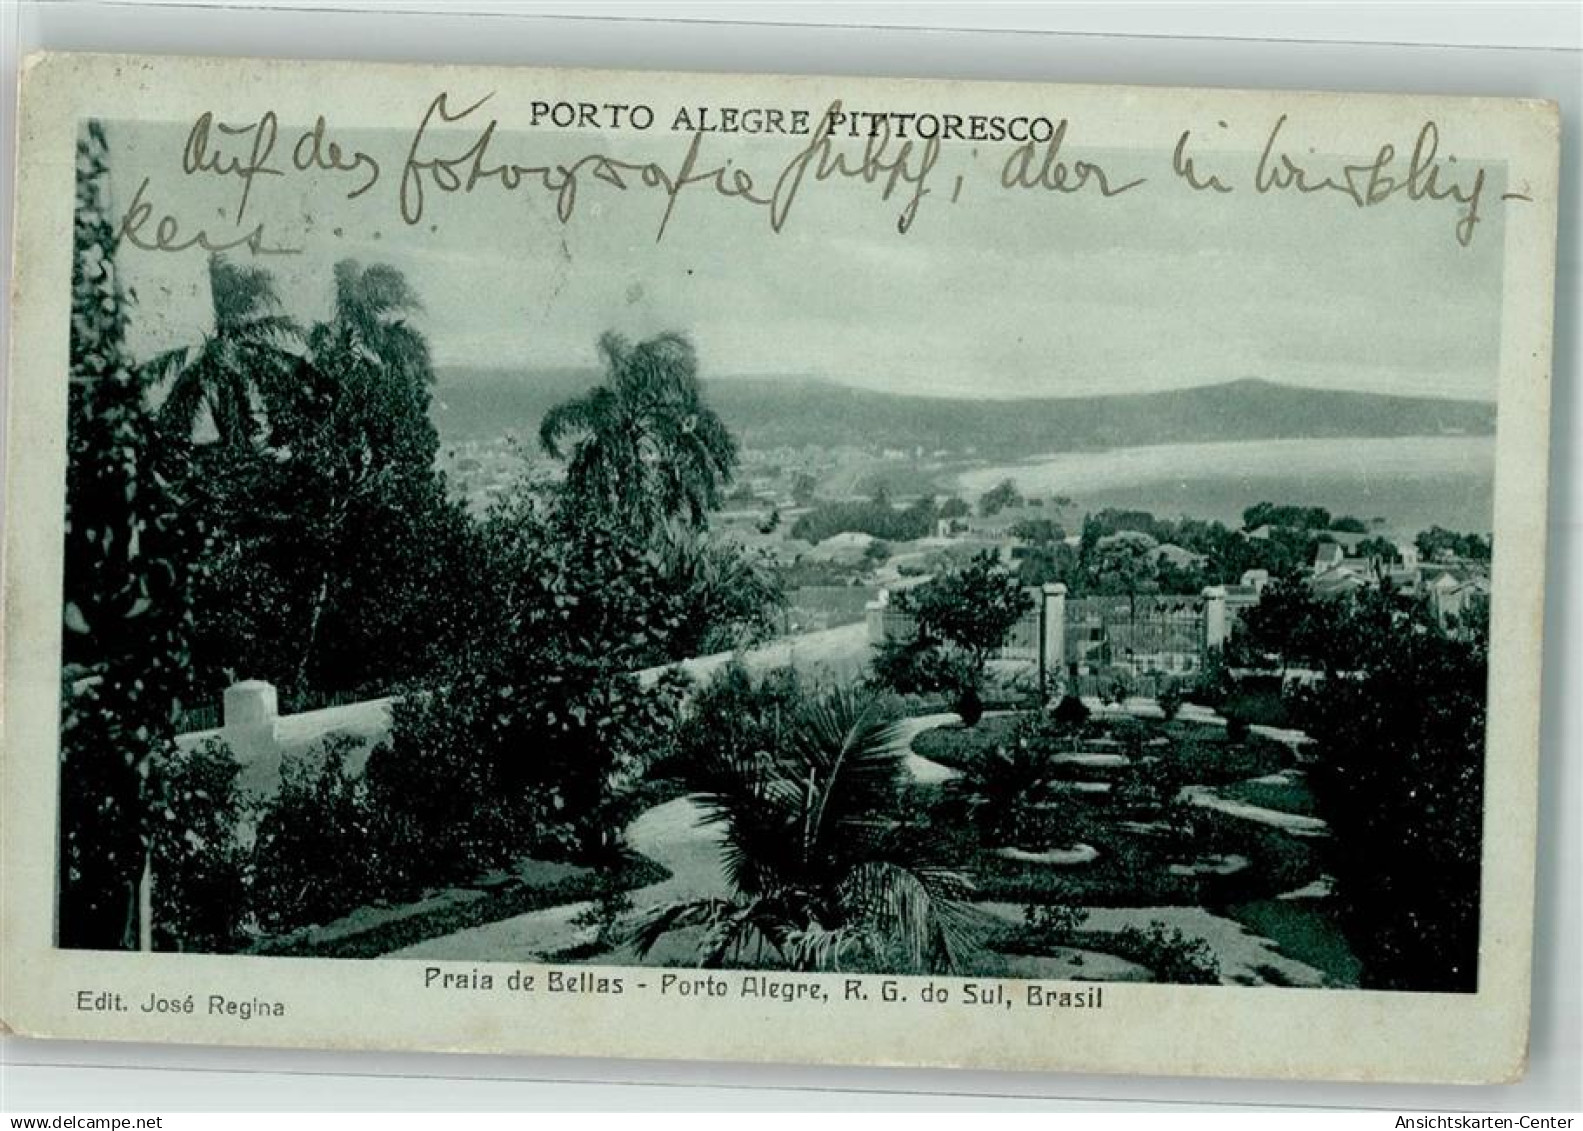 PORTO ALEGRE PITTORESCO
Auf der Fotografie hübsch, aber in Wirklichkeit....
Praia de Bellas - Porto Alegre, R. G. do Sul, Brasil
Edit. José Regina
118670110
Ansichtskarten-Center